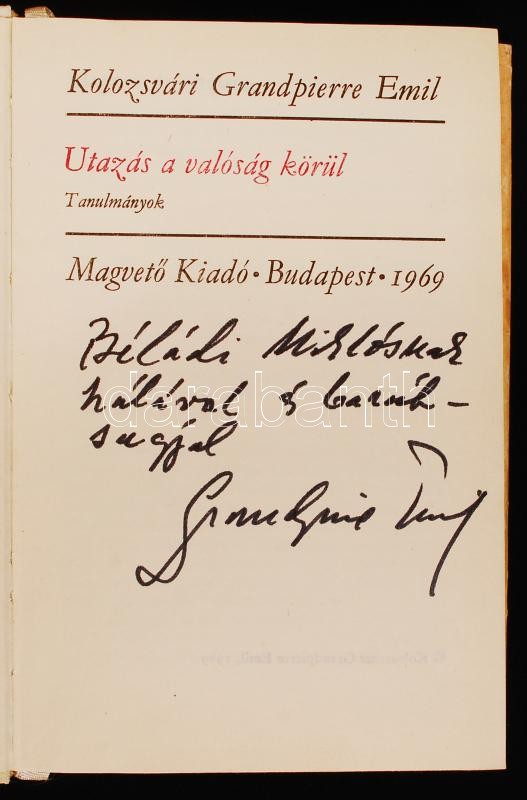 Kolozsvári Grandpierre Emil
Utazás a valóság körül
Tanulmányok
Magvető Kiadó • Budapest • 1969
Béládi Miklósnak
hálával és barát-
sággal
darabanth
Grandpierre Emil